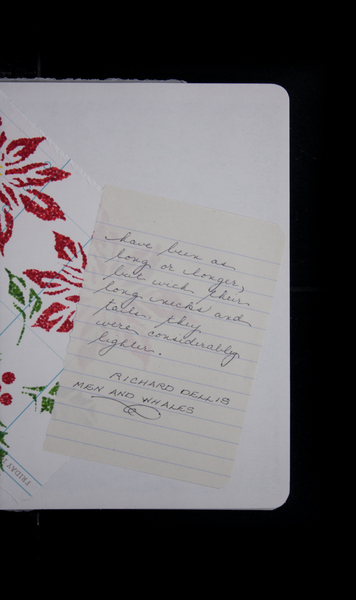 have been as
long or longer,
but with their
long necks and
tails they
were considerably
lighter.
RICHARD DELLIS
MEN AND WHALES
FRIDAY